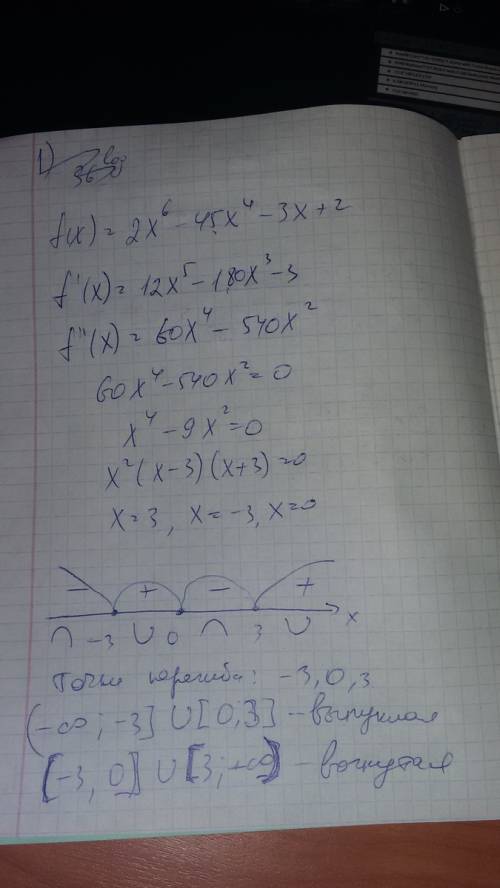 1)
f(x) = 2x⁶ - 45x⁴ - 3x + 2
f'(x) = 12x⁵ - 180x³ - 3
f''(x) = 60x⁴ - 540x²
60x⁴ - 540x² = 0
x⁴ - 9x² = 0
x²(x-3)(x+3) = 0
x = 3, x = -3, x = 0
- + - +
∩ -3 ∪ 0 ∩ 3 ∪ x
Точки перегиба: -3, 0, 3
(-∞; -3] ∪ [0; 3] - выпуклая
[-3, 0] ∪ [3; +∞) - вогнутая